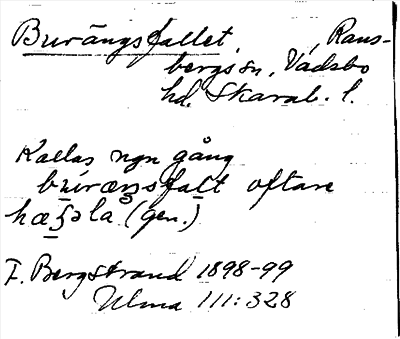 Burängsfallet, Rans-
bergs sn, Vadsbo
hd. Skarab. l.
Kallas ngn gång
oftare
(gen.)
F. Bergstrand 1898-99
Ulma 111:328